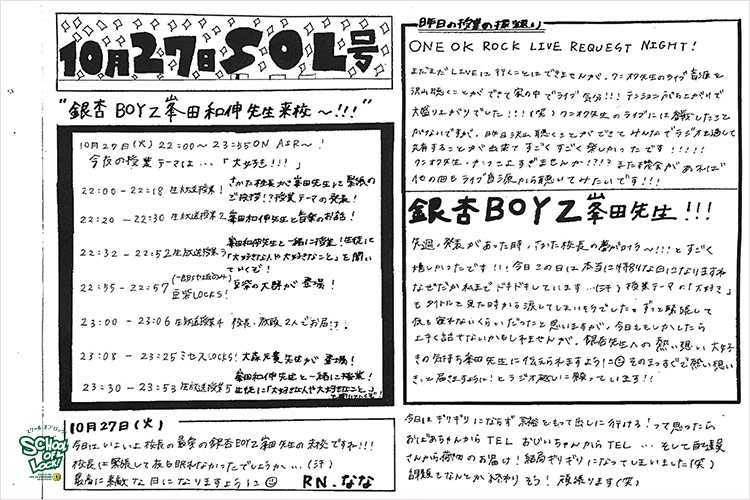 10月27日SOL号
"銀杏BOYZ峯田和伸先生来校〜!!!"
10月27日(火) 22:00〜23:55 ON AIR〜!
今夜の授業テーマは…「大好き!!!」
22:00-22:18 生放送授業1 さかた校長が峯田先生と緊張の
ご挨拶!?授業テーマの発表!
22:20-22:30 生放送授業2 峯田和伸先生と音楽のお話!
22:32-22:52 生放送授業3 峯田和伸先生と一緒に授業!生徒に
「大好きな人や大好きなこと」を聞い
ていくぞ!
22:55-22:57 (一部地域のみ) 豆柴LOCKS! 豆柴の大群が登場!
23:00-23:06 生放送授業4 校長、教頭2人でお届け!
23:08-23:25 ミセスLOCKS! 大森元貴先生が登場!
23:30-23:53 生放送授業5 峯田和伸先生と一緒に授業!
生徒に「大好きな人や大好きなこと」
を聞いていくぞ!
10月27日(火)
今日はいよいよ校長の最愛の銀杏BOYZ峯田先生の来校ですね!!!
校長は緊張して夜も眠れなかったでしょうか…(汗)
最高に素敵な日になりますように
R.N.なな
スクールオブロック!
SCHOOL OF LOCK!
昨日の授業の振り返り
ONE OK ROCK LIVE REQUEST NIGHT!
まだまだLIVEに行くことはできませんが、ワンオク先生のライブ音源を
沢山聴くことができて家の中でライブ気分!!!テンションぶち上がりで
大盛り上がりでした!!!(笑)ワンオク先生のライブには参戦したことが
ないですが、昨日沢山聴くことができてみんなでラジオを通して
共有することが出来てすごくすごく楽しかったです!!!!!
ワンオク先生、カッコよすぎませんか!?!?また機会があれば
他の曲もライブ音源から聴いてみたいです!!!
銀杏BOYZ峯田先生!!!
先週、発表があった時、さかた校長の夢が叶う〜!!!とすごく
嬉しかったです!!!今日この日は本当に特別な日になりますね
なぜだか私までドキドキしています…(汗)授業テーマの「大好き」
夜も寝れないくらいだったことと思いますが、今日ももしかしたら
上手く話せないかもしれませんが、銀杏先生への熱い想い、大好き
の気持ちを峯田先生に伝えられますように そのまっすぐで熱い想い
きっと届きますように!とラジオ越しに願っています!!
今日はギリギリにならず余裕をもって出しに行ける!って思ったら
おばあちゃんからTEL おじいちゃんからTEL … そして配達員
さんから荷物のお届け!結局ギリギリになってしまいました(笑)
課題もなんとか終わりそう!頑張ります(笑)